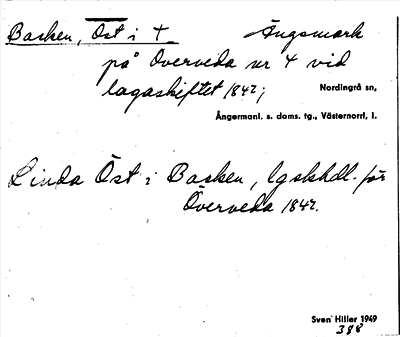 Basken, Öst i + Ängsmark
på Överveda nr 4 vid
lagaskiftet 1842;
Nordingrå sn,
Ångermanl. s. doms. tg., Västernorrl, l.
Linda Öst i Basken, lgskhdl. för
Överveda 1842.
Sven Hiller 1949
388